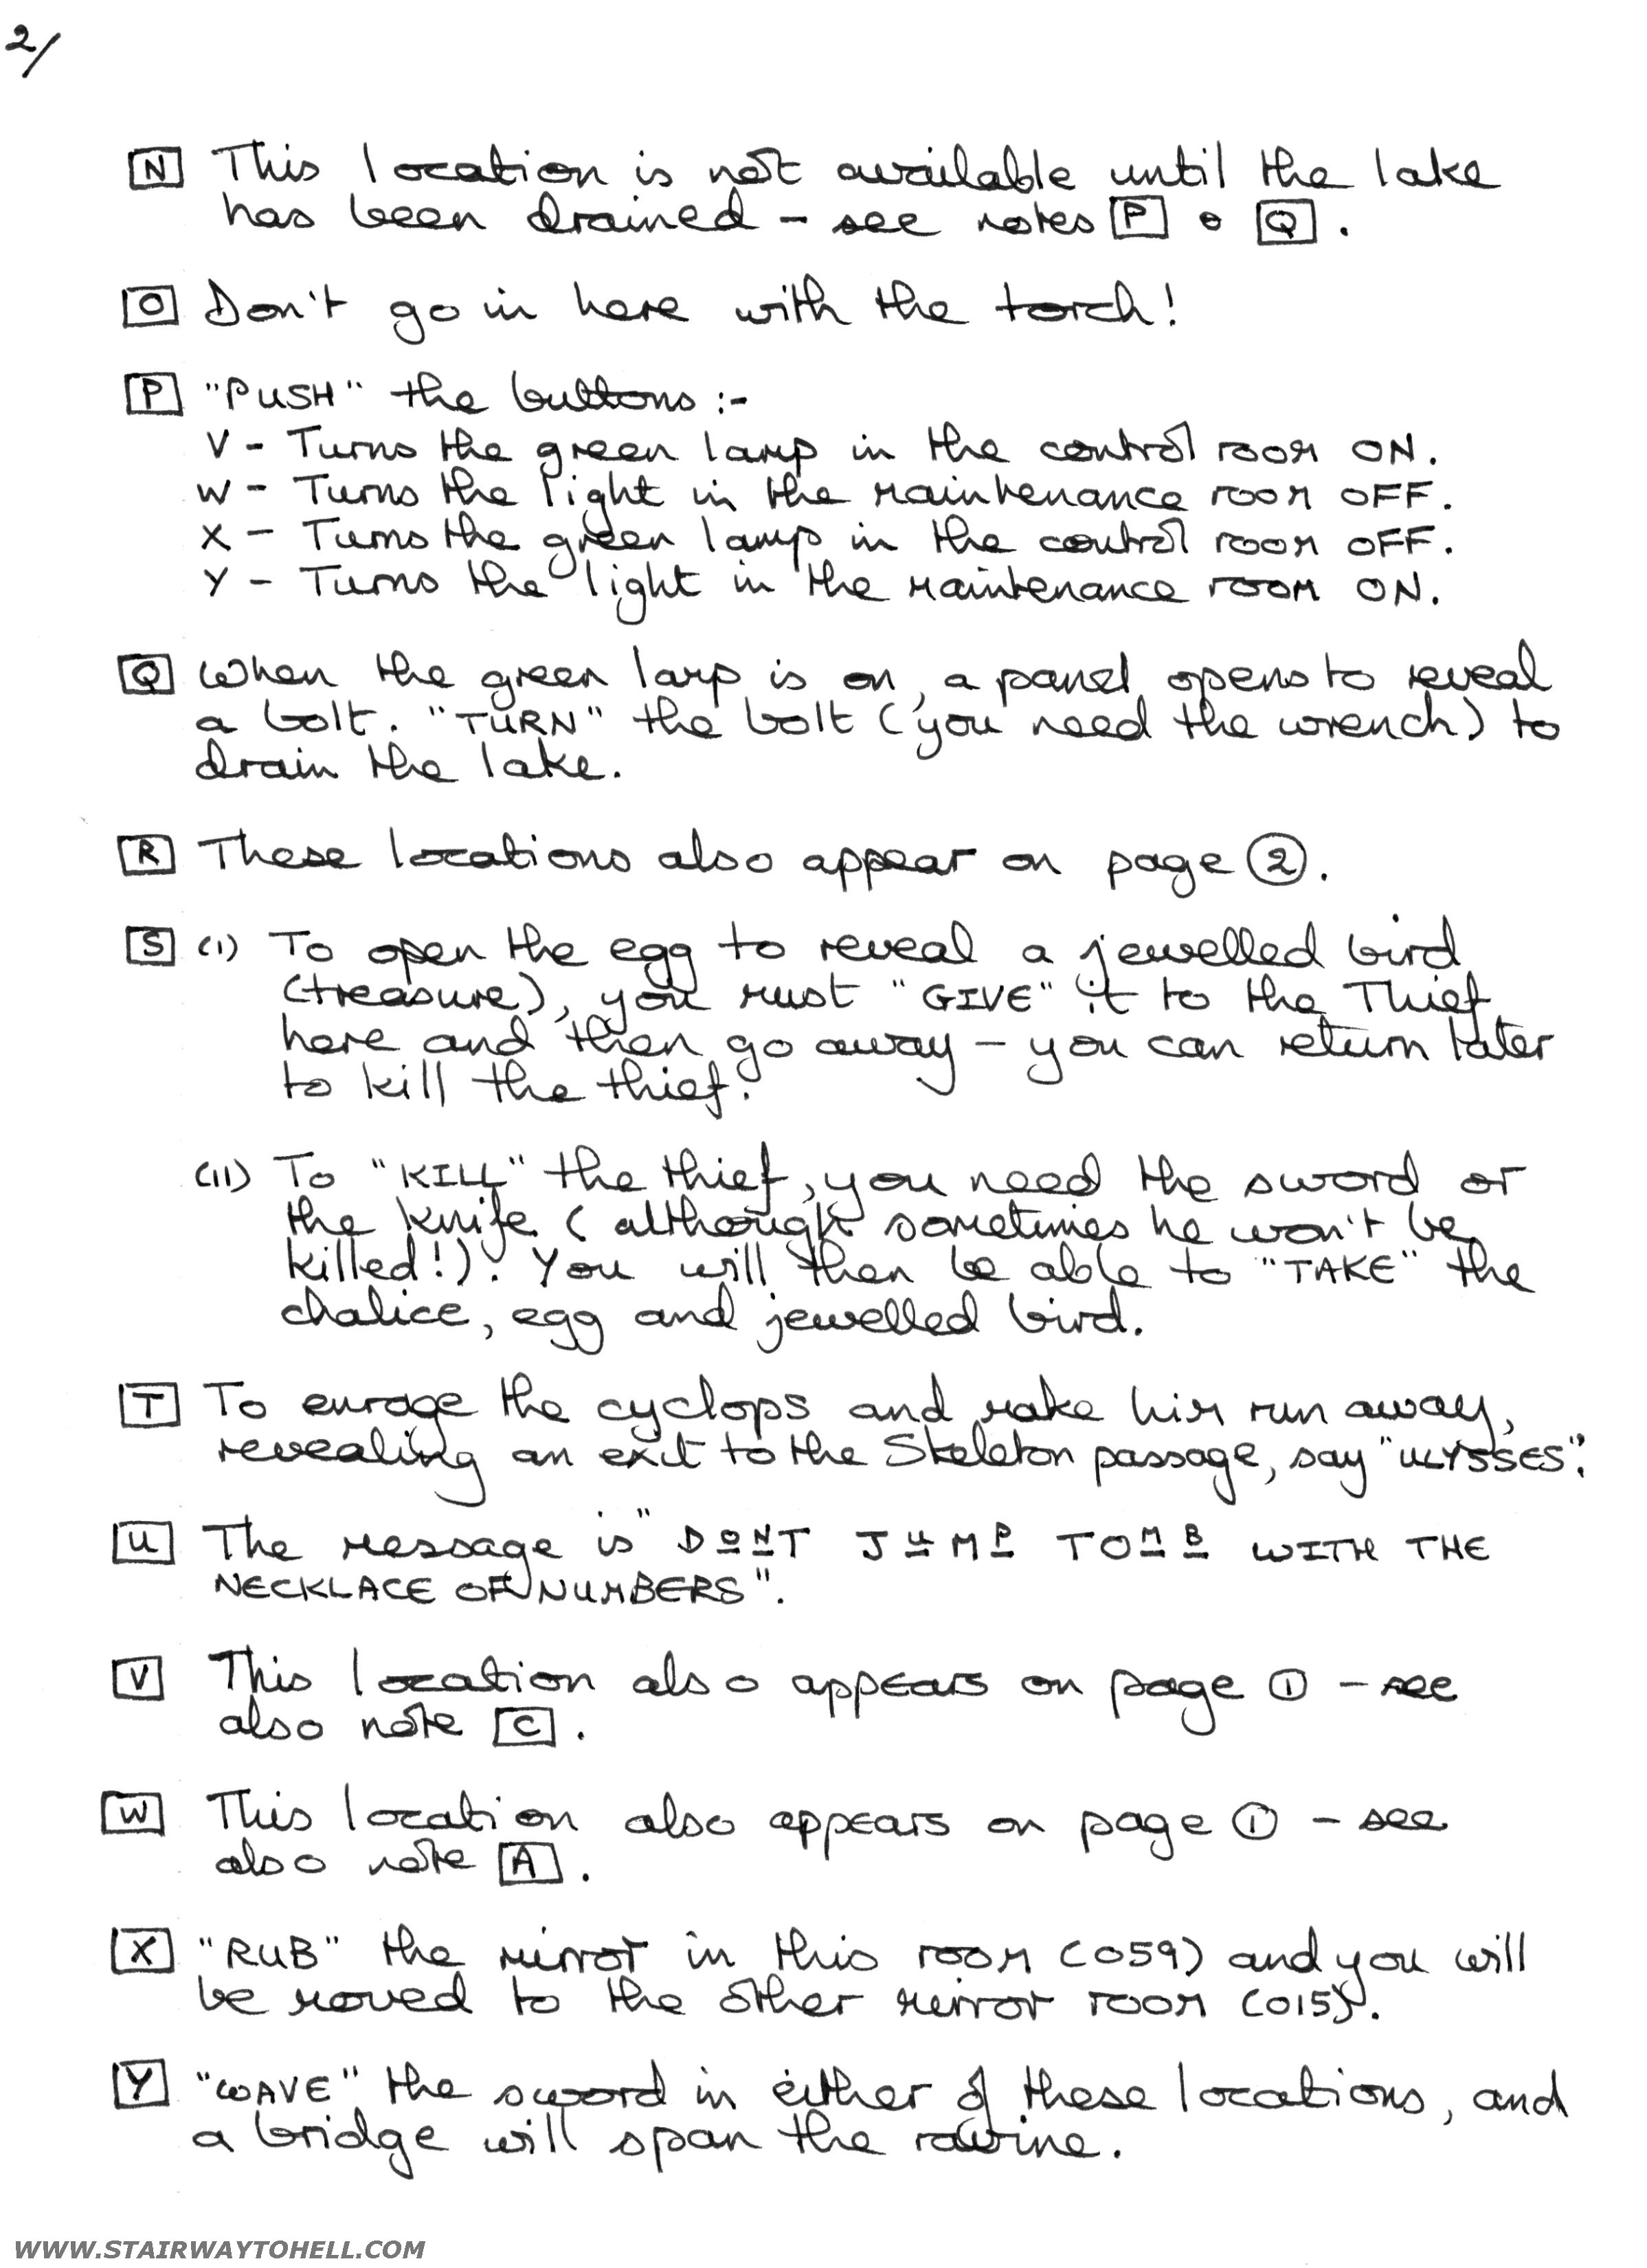 2/
N This location is not available until the lake
has been drained - see notes P & Q.
O Don't go in here with the torch!
P "PUSH" the buttons :-
V - Turns the green lamp in the control room ON.
W - Turns the light in the maintenance room OFF.
X - Turns the green lamp in the control room OFF.
Y - Turns the light in the maintenance room ON.
Q When the green lamp is on, a panel opens to reveal
a bolt. "TURN" the bolt (you need the wrench) to
drain the lake.
R These locations also appear on page 2.
S (I) To open the egg to reveal a jewelled bird
(treasure), you must "GIVE" it to the Thief
here and then go away - you can return later
to kill the thief.
(II) To "KILL" the thief, you need the sword or
the knife (although sometimes he won't be
killed!). You will then be able to "TAKE" the
chalice, egg and jewelled bird.
T To enrage the cyclops and make him run away,
revealing an exit to the Skeleton passage, say "ULYSSES".
U The message is "DONT JUMP TOMB WITH THE
NECKLACE OF NUMBERS".
V This location also appears on page 1 - see
also note C.
W This location also appears on page 1 - see
also note A.
X "RUB" the mirror in this room (059) and you will
be moved to the other mirror room (015).
Y "WAVE" the sword in either of these locations, and
a bridge will span the ravine.
WWW.STAIRWAYTOHELL.COM